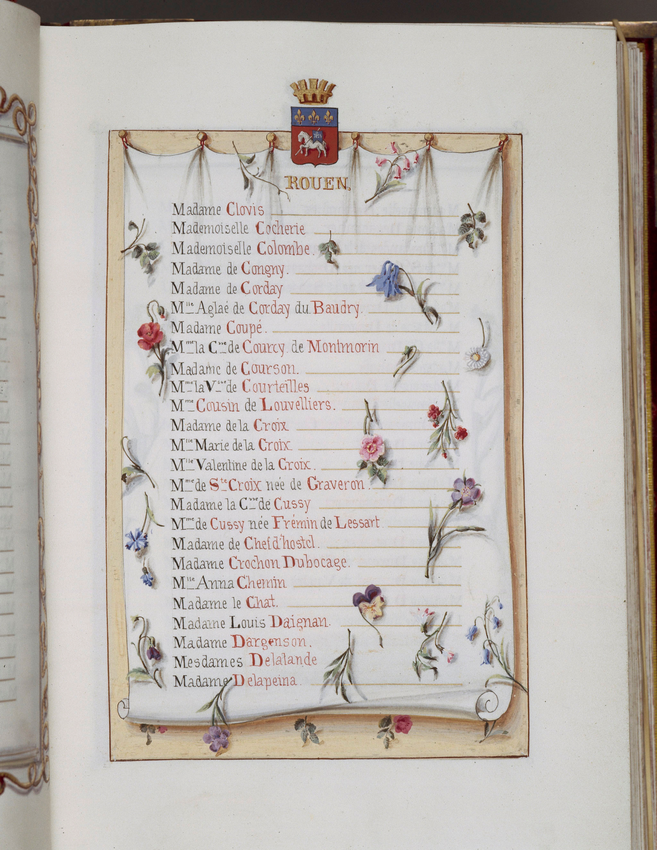 ROUEN.
Madame Clovis
Mademoiselle Cocherie
Mademoiselle Colombe.
Madame de Congny.
Madame de Corday
Mlle Aglaé de Corday du Baudry.
Madame Coupé.
Mme la Csse de Courcy de Montmorin
Madame de Courson.
Mme la Vtesse de Courteilles
Mme Cousin de Louvelliers.
Madame de la Croix.
Mlle Marie de la Croix.
Mlle Valentine de la Croix.
Mme de Ste Croix née de Graveron.
Madame la Csse de Cussy
Mme de Cussy née Frémin de Lessart
Madame de Chefd'hostel.
Madame Crochon Dubocage.
Mlle Anna Chemin
Madame le Chat.
Madame Louis Daignan.
Madame Dargenson.
Mesdames Delalande
Madame Delapeina.